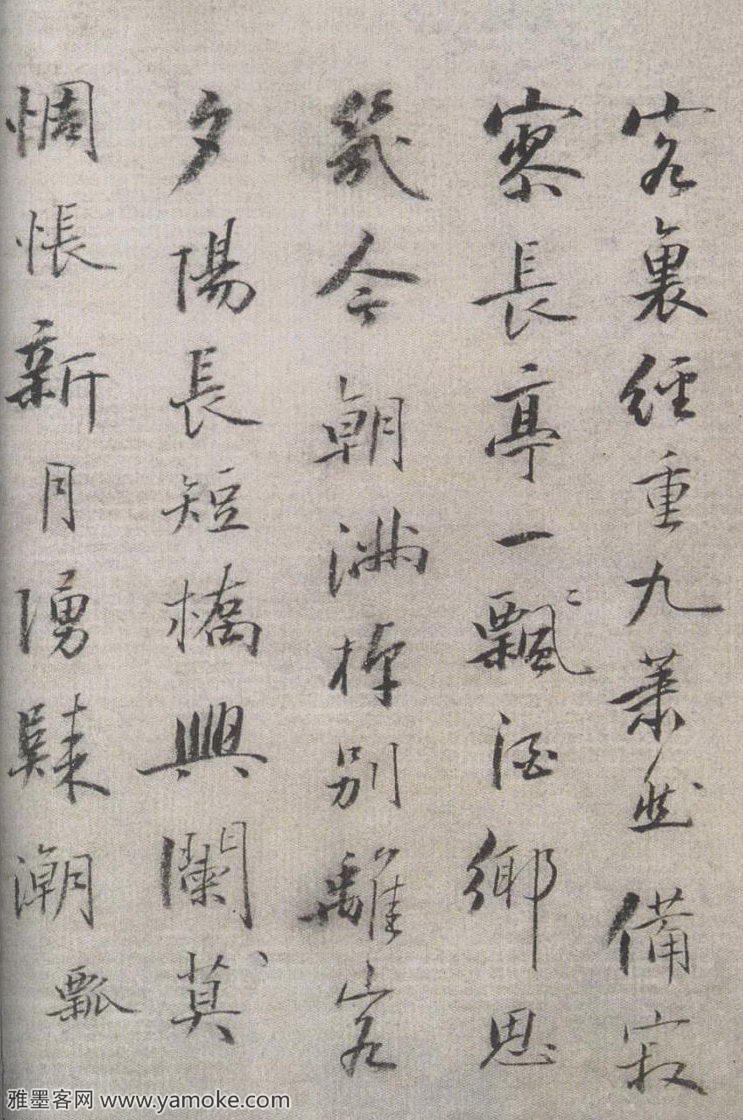 客裏經重九蕭然備寂
寥長亭一飄酒鄉思
幾今朝滿棹別離客
夕陽長短橋興闌莫
惆悵新月湧疑潮 瓢
雅墨客网 www.yamoke.com